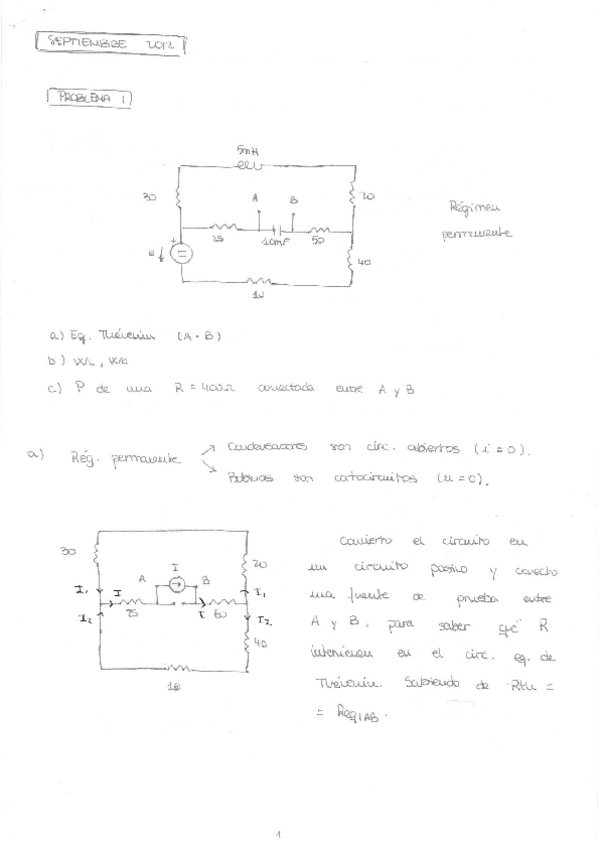 SEPTIEMBRE 2012
PROBLEMA 1
5mH
30
A
B
20
Régimen
permanente
25
10mF
50
e
40
10
a) Eq. Thévenin (A-B)
b) WL, WC
c) P de una R = 400Ω conectada entre A y B
a) Rég. permanente
Condensadores son circ. abiertos (i = 0).
Bobinas son cortocircuitos (u = 0).
30
I
A
B
20
I1
I
I
I1
I2
25
50
I2
40
10
Convierto el circuito en
un circuito pasivo y conecto
una fuente de prueba entre
A y B, para saber qé R
intervienen en el circ. eq. de
Thévenin. Sabiendo de Rth =
= Req|AB.
1